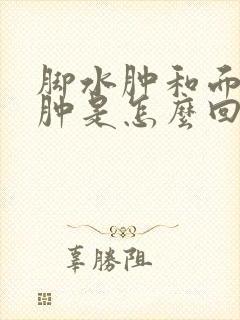 脚水肿和而
肿是怎麼回
辜勝阻